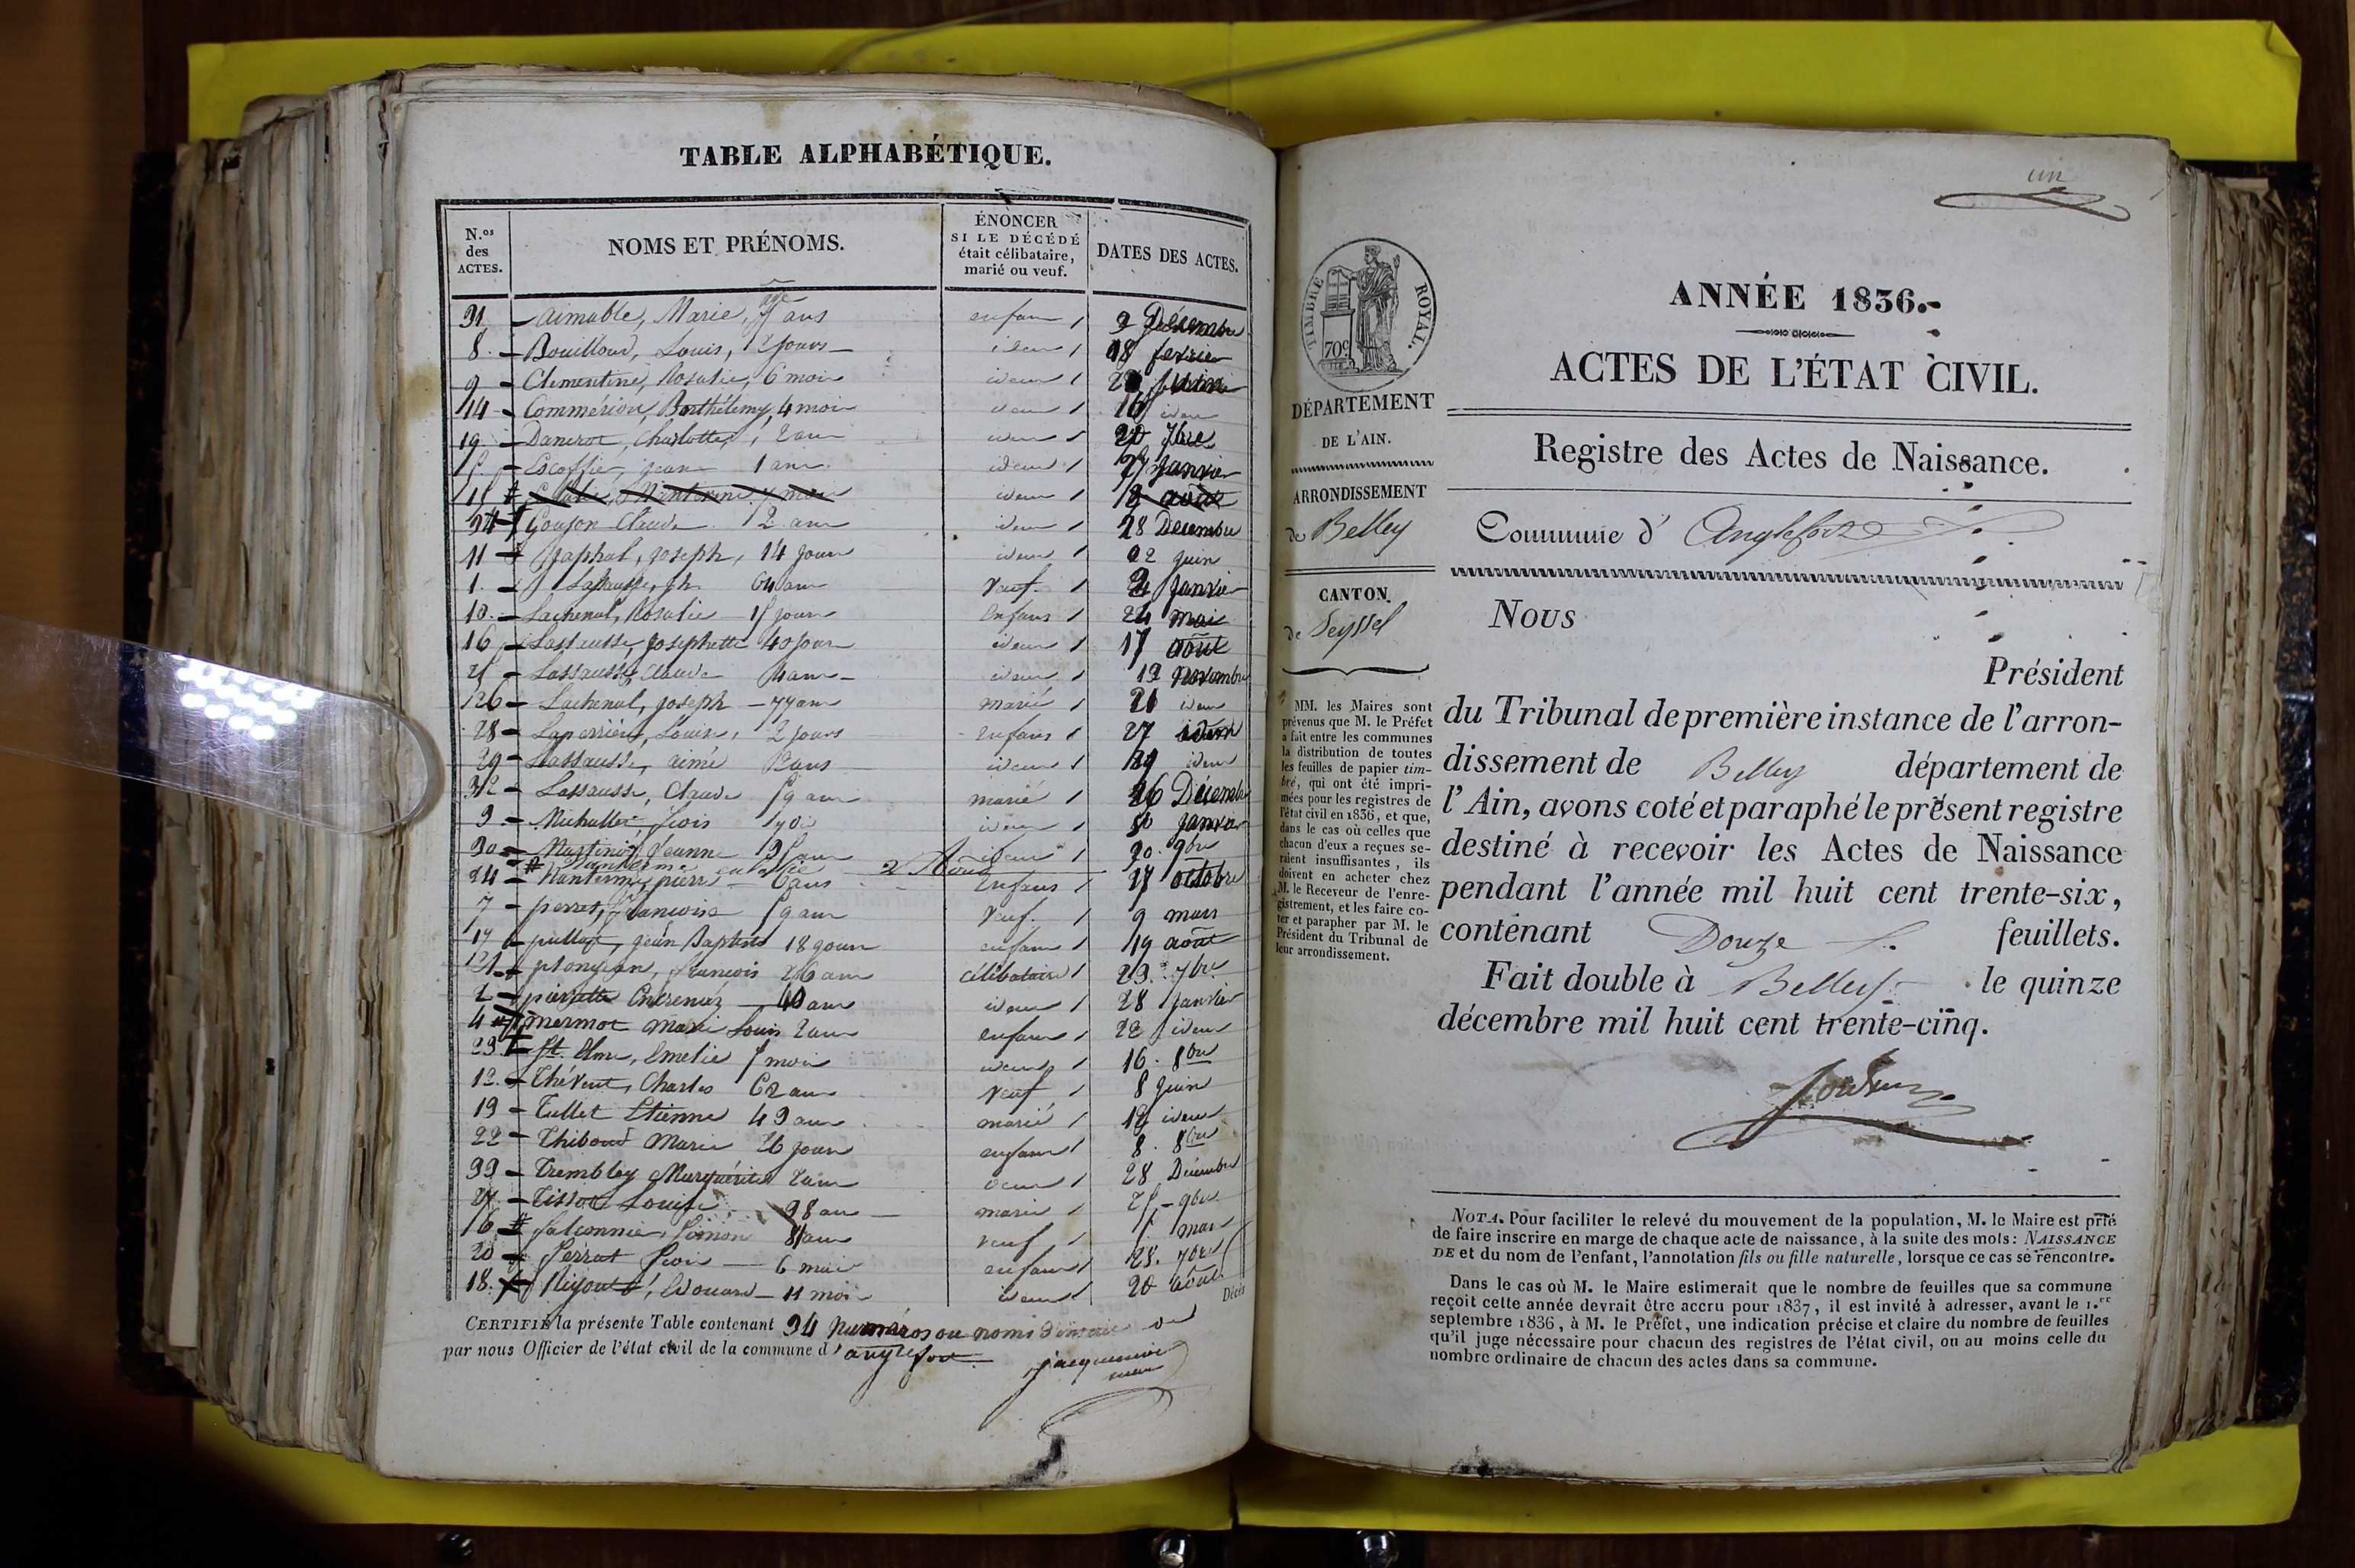 TABLE ALPHABÉTIQUE.
N.os des ACTES.
NOMS ET PRÉNOMS.
ÉNONCER SI LE DÉCÉDÉ était célibataire, marié ou veuf.
DATES DES ACTES.
31 Aimable, Marie, âgé 7 ans enfant 9 Décembre
8 Bouilloud, Louis, 12 jours idem 18 fevrier
9 Clementine, Rosalie, 6 mois idem
14 Commérion, Barthélemy, 4 mois idem 16 idem
19 Dancrot, Charlotte, 2 ans idem 20 7bre
5 Escoffié, jean 1 ans idem Janvier
idem 18 août
34 Goujon Claude 2 ans idem 28 Decembre
11 Raphal, joseph, 14 jours idem 02 juin
1 Lassausse, jh 64 ans Veuf Janvier
10 Lachenal, Rosalie 15 jours Enfans 24 mai
16 Lassausse, josephette 40 jours idem 17 août
25 Lassausse, Claude 4 ans idem 19 Novembre
26 Lachenal, joseph 77 ans marié 21 idem
28 Laperrière, Louise, 2 jours Enfans 27 idem
29 Lassausse, aimé 2 ans idem 29 idem
32 Lassausse, Claude 59 ans marié 26 Décembre
3 Michallet, fcois idem 30 Janvier
30 Martinod, Jeanne idem 30 9bre
24 Nanterme, pierre 6 ans Enfans 17 octobre
7 perret, francoise 59 ans Veuf 9 mars
17 pullat, jean Baptiste 18 jours enfans 19 août
21 plongeon, francois 26 ans célibataire 23 7bre
2 pierrette 40 ans idem 28 Janvier
4 mermot marie Louise 2 ans enfans 22 idem
23 St. Elme, Emelie 5 mois idem 16 8bre
12 Thévent, Charles 62 ans Veuf 8 juin
13 Tullet Etienne 43 ans marié 12 idem
22 Thiboud Marie 26 jours enfans 8 8bre
33 Trembley Marguérite 2 ans idem 28 Décembre
27 Tissot Louise 38 ans marié 25 9bre
6 falconnier, simon 81 ans veuf 5 mars
20 ferrat fcois 6 mois enfans 23 7bre
18 Rigoud, Edouard 11 mois idem 20 août
Décès
CERTIFIÉ la présente Table contenant 34 numéros ou noms
par nous Officier de l'état civil de la commune d'anglefort
jacquemier
un
TIMBRE ROYAL.
70c
ANNÉE 1836.
ACTES DE L'ÉTAT CIVIL.
Registre des Actes de Naissance.
Commune d' Anglefort
DÉPARTEMENT
DE L'AIN.
ARRONDISSEMENT
de Belley
CANTON
de Seyssel
MM. les Maires sont
prévenus que M. le Préfet
a fait entre les communes
la distribution de toutes
les feuilles de papier tim-
bré, qui ont été impri-
mées pour les registres de
l'état civil en 1836, et que,
dans le cas où celles que
chacun d'eux a reçues se-
raient insuffisantes, ils
doivent en acheter chez
M. le Receveur de l'enre-
gistrement, et les faire co-
ter et parapher par M. le
Président du Tribunal de
leur arrondissement.
Nous
Président
du Tribunal de première instance de l'arron-
dissement de Belley département de
l'Ain, avons coté et paraphé le présent registre
destiné à recevoir les Actes de Naissance
pendant l'année mil huit cent trente-six,
contenant Douze feuillets.
Fait double à Belley le quinze
décembre mil huit cent trente-cinq.
NOTA. Pour faciliter le relevé du mouvement de la population, M. le Maire est prié
de faire inscrire en marge de chaque acte de naissance, à la suite des mots: NAISSANCE
DE et du nom de l'enfant, l'annotation fils ou fille naturelle, lorsque ce cas se rencontre.
Dans le cas où M. le Maire estimerait que le nombre de feuilles que sa commune
reçoit cette année devrait être accru pour 1837, il est invité à adresser, avant le 1.er
septembre 1836, à M. le Préfet, une indication précise et claire du nombre de feuilles
qu'il juge nécessaire pour chacun des registres de l'état civil, ou au moins celle du
nombre ordinaire de chacun des actes dans sa commune.